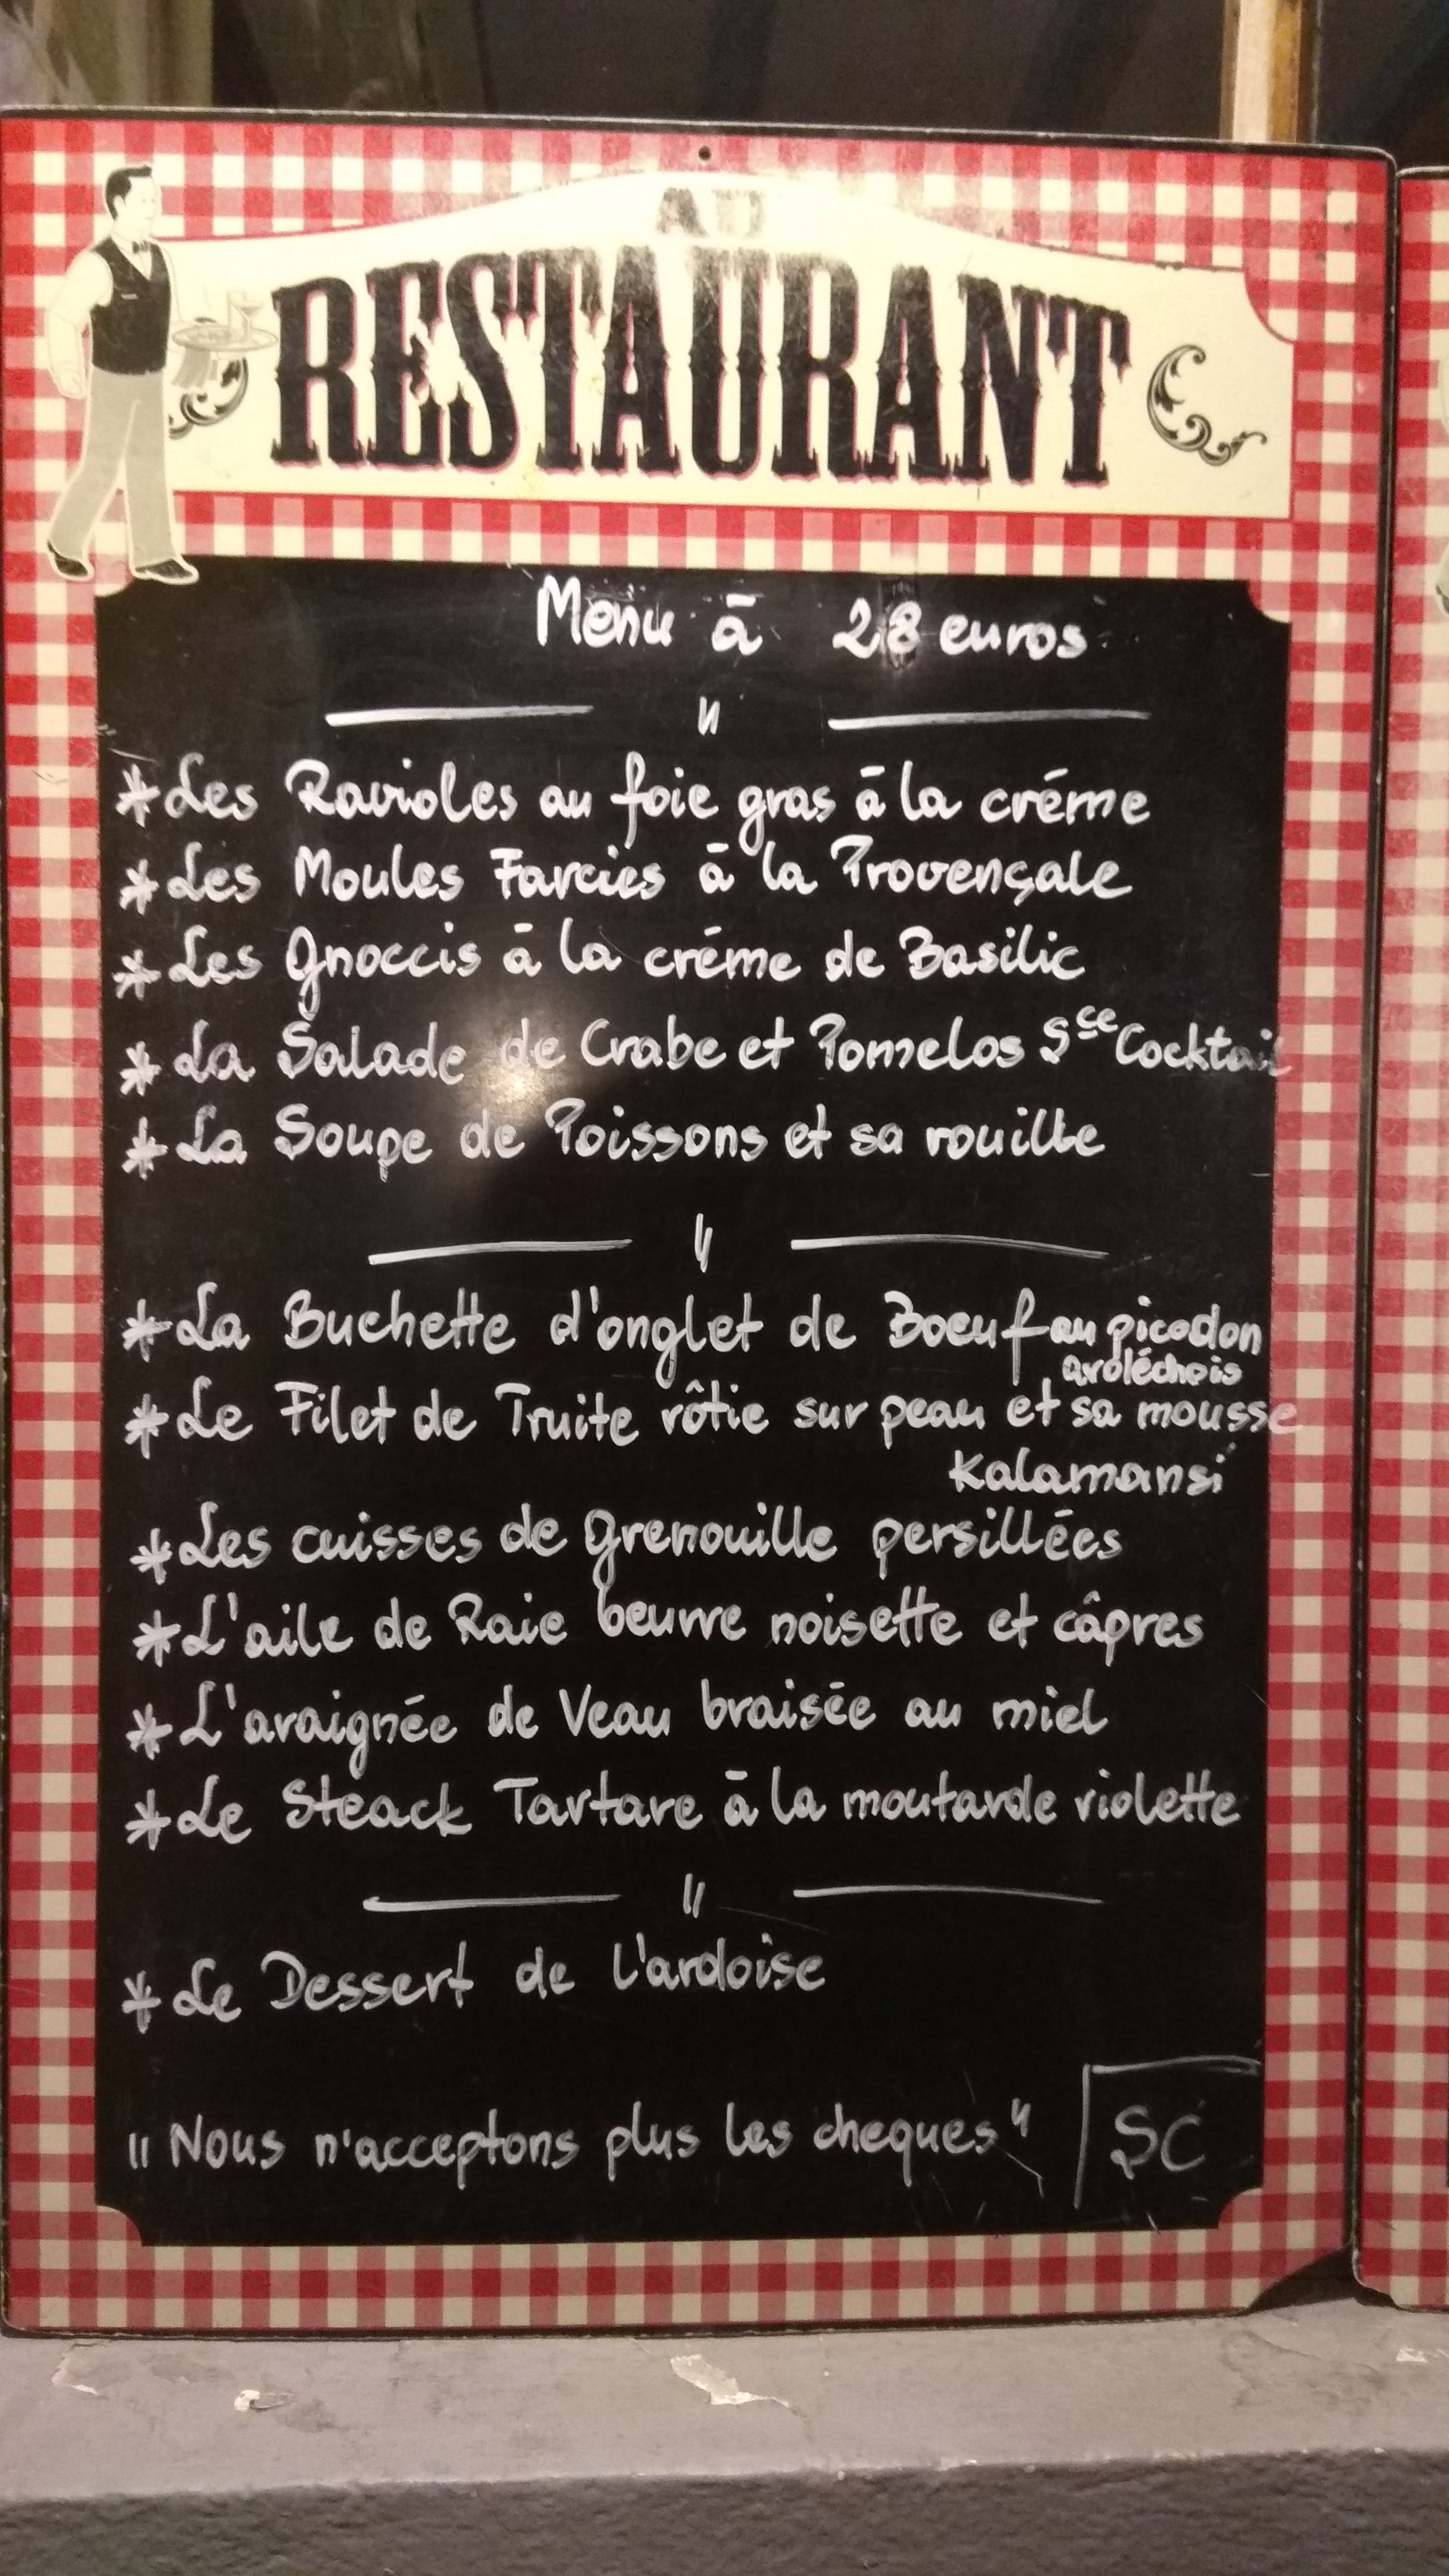 AU
RESTAURANT
Menu à 28 euros
"
* Les Ravioles au foie gras à la créme
* Les Moules Farcies à la Provençale
* Les Gnoccis à la créme de Basilic
* La Salade de Crabe et Pomelos Sce Cocktail
* La Soupe de Poissons et sa rouille
"
* La Buchette d'onglet de Boeuf au picodon
ardéchois
* Le Filet de Truite rôtie sur peau et sa mousse
Kalamansi
* Les cuisses de grenouille persillées
* L'aile de Raie beurre noisette et câpres
* L'araignée de Veau braisée au miel
* Le Steack Tartare à la moutarde violette
"
* Le Dessert de l'ardoise
" Nous n'acceptons plus les cheques" SC